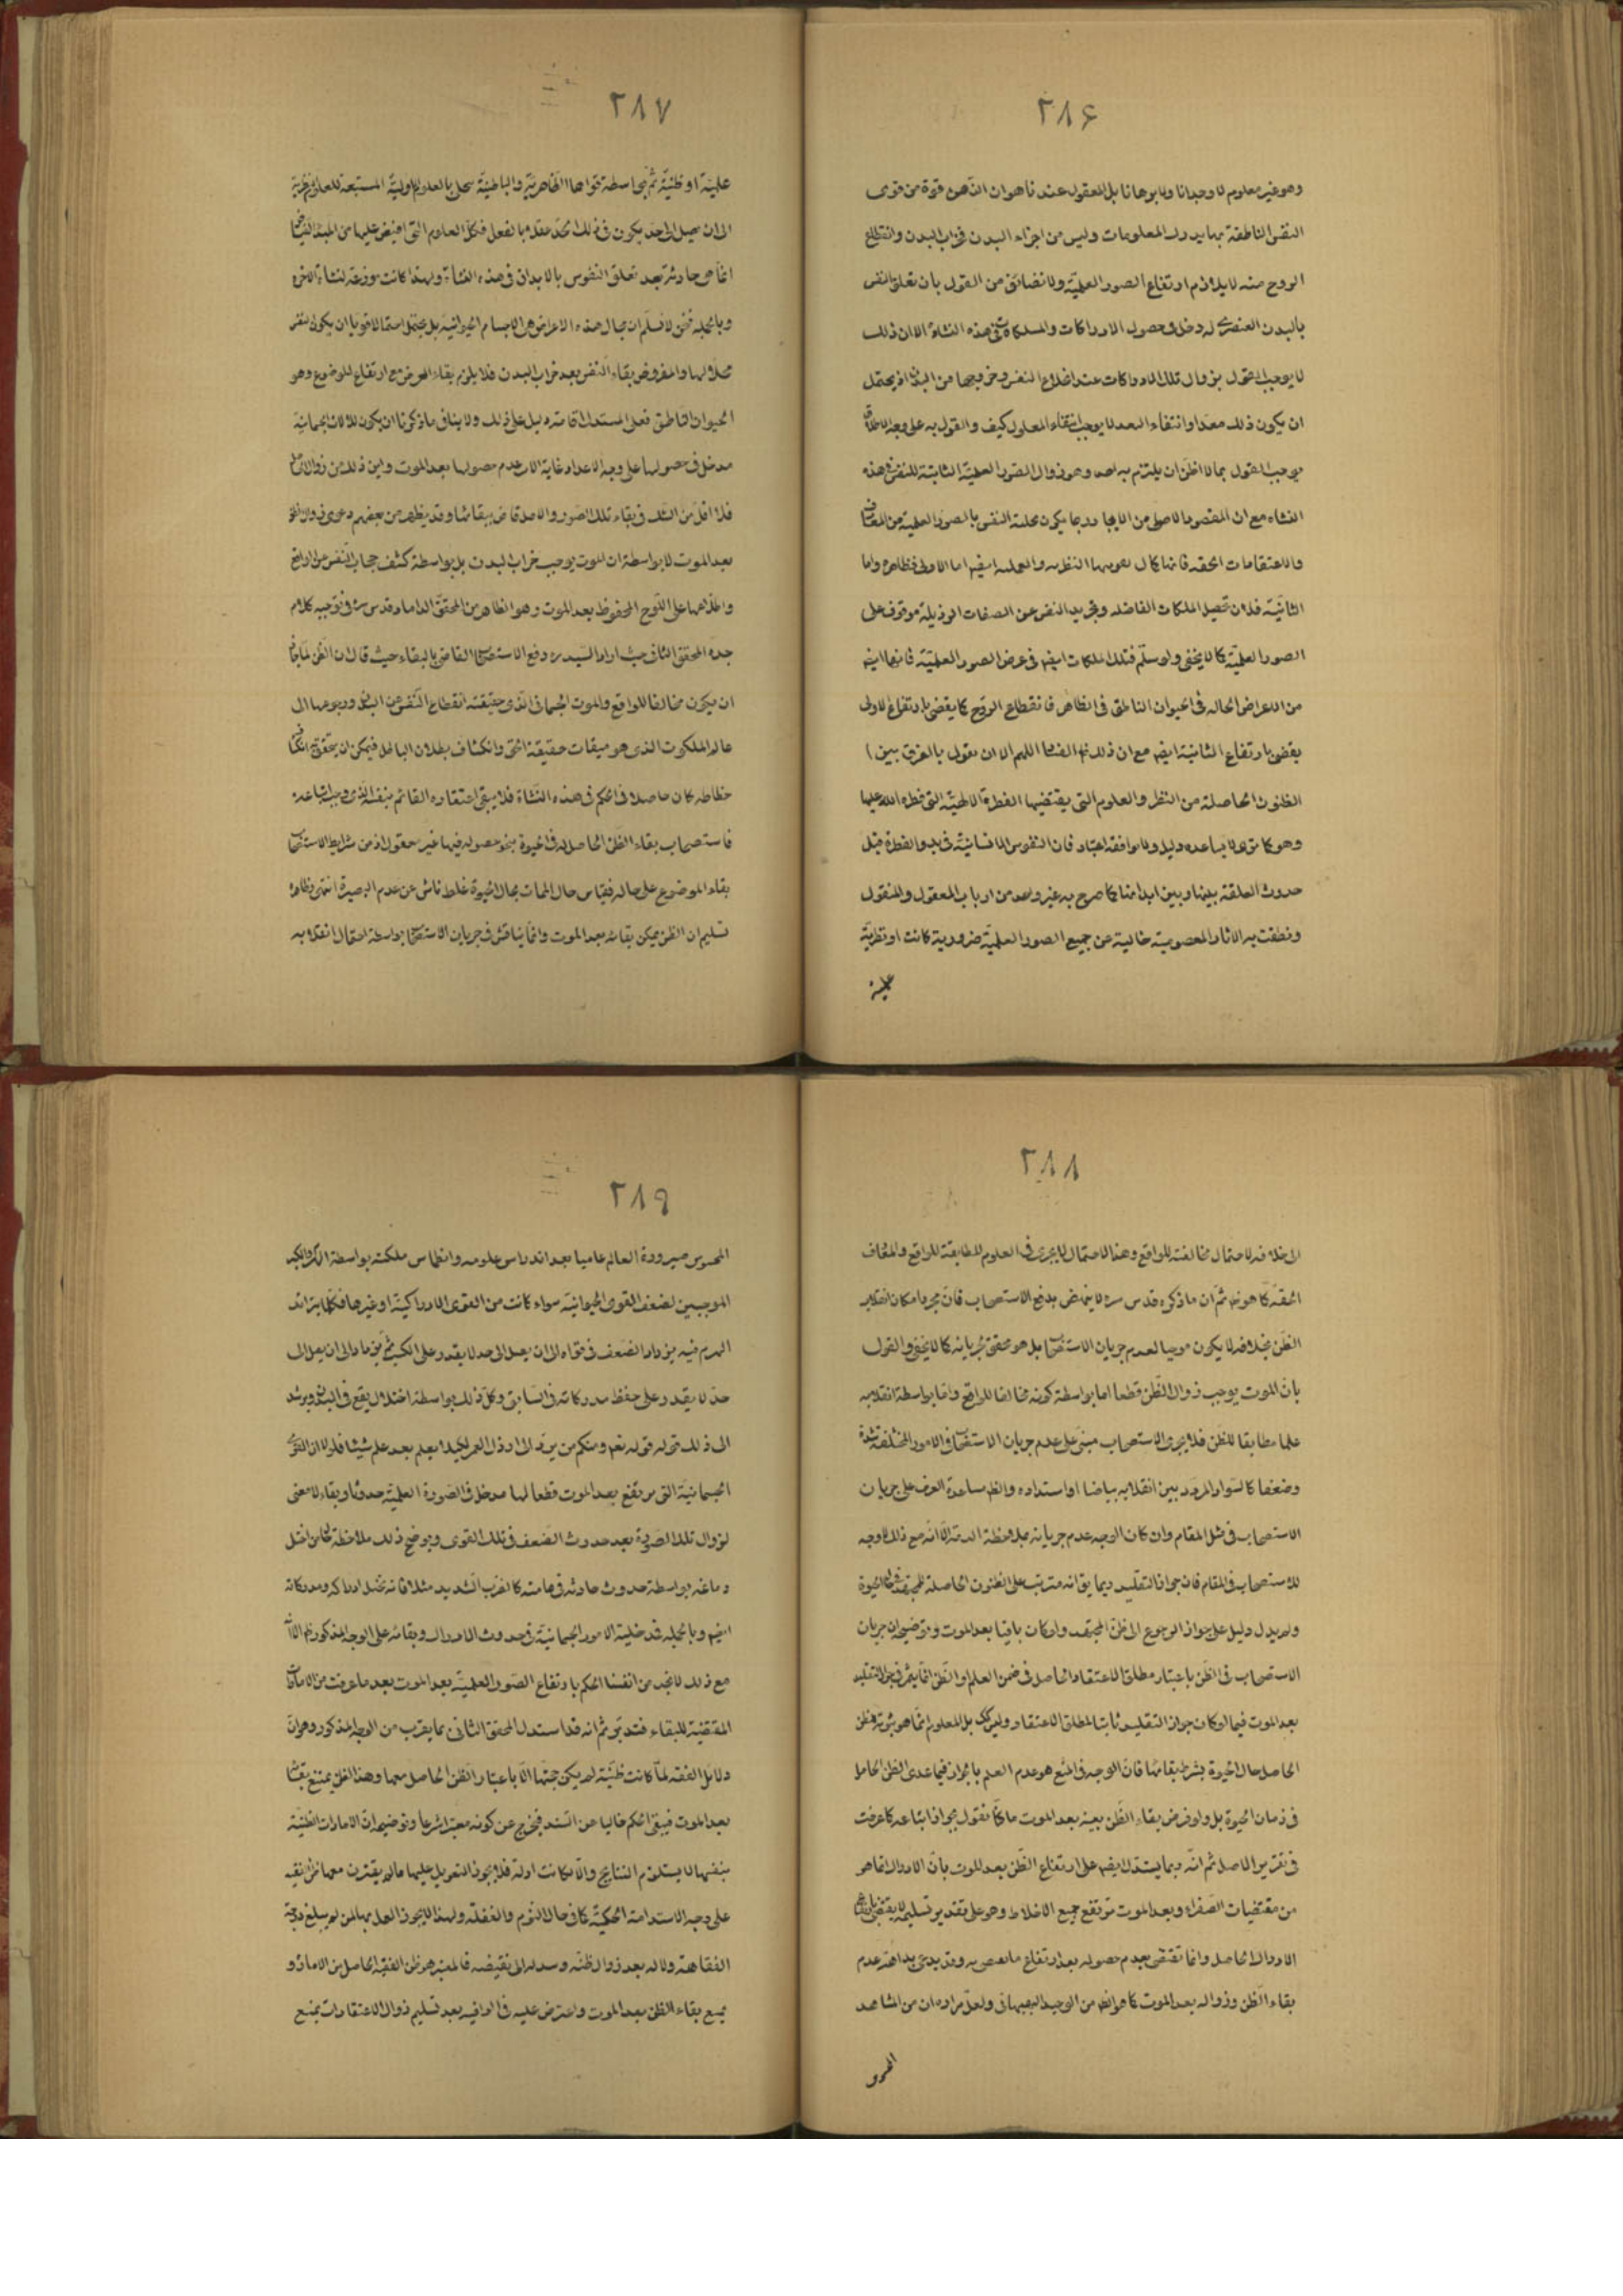 ۲۸۶
وهو غير معلوم لا وجدانا ولا برهانا بل المعقول عندنا هو ان الذهن قوة من قوى
النفس الناطقة بها يدرك المعلومات وليس من اجزاء البدن فخراب البدن وانقطاع
الروح منه لا يلازم ارتفاع الصور العلميّة ولا نضايق من القول بان تعلق النفس
بالبدن العنصرى له دخل فى حصول الادراكات والملكات فى هذه النشاة الا ان ذلك
لا يوجب القول بزوال تلك الادراكات عند انخلاع النفس وخروجها من البدن اذ يحتمل
ان يكون ذلك معدا وانتفاء المعد لا يوجب انتفاء المعلول كيف والقول به على وجه الاطلاق
يوجب القول بما لا اظن ان يلتزم به احد وهو زوال الصور العلميّة الثابتة للنفس فى هذه
النشاه مع ان المقصود الاصلى من الايجاد ربما يكون تحلية النفس بالصور العلمية من المعارف
والاعتقادات الحقه فانها كمال النظريه والعمليه ايضا اما الاولى فظاهره واما
الثانيّة فلان تحصيل الملكات الفاضله وتجريد النفس عن الصفات الرذيلة موقوف على
الصور العلميّة كما لا يخفى ولو سلّم فتلك الملكات ايضا فى عرض الصور العلميّة فانها ايضا
من الاعراض الحاله فى الحيوان الناطق فى الظاهر فانقطاع الروح كما يقضى بارتفاع الاولى
يقضى بارتفاع الثانية ايضا مع ان ذلك اللهم الا ان نقول بالفرق بين
الظنون الحاصلة من النظر والعلوم التى يقتضيها الفطرة الالهيّه التى فطره الله عليها
وهو كما ترى لا يساعده دليل ولا يوافقه اعتبار فان النفوس الانسانيّة فى بدو الفطرة قبل
حدوث العلقة بينها وبين ابداننا كما صرح به غير واحد من ارباب المعقول والمنقول
ونطقت به الاثار المعصومية خالية عن جميع الصور العلميّة ضرورية كانت او نظريّة
علميّة
۲۸۷
علميّة او ظنيّة ثم بواسطة قواها الظاهريّة والباطنيّة تحلى بالعلوم الاوليّة المستتبعة للعلوم النظرية
الى ان يصل الى حدّ يكون فى ذلك الحدّ عقلا بالفعل فكل العلوم التى افيض عليها من المبدا الفياض
انما هى حادثة بعد تعلق النفوس بالابدان فى هذه النشاة ولهذا كانت مزرعة لنشاة الاخره
وبالجمله فنحن لا نسلّم ان محال هذه الاعراض هى الاجسام الحيوانيّة بل يحتمل احتمالا قويا ان يكون النفس
محلا لها والمفروض بقاء النفس بعد خراب البدن فلا يلزم بقاء العرض مع ارتفاع الموضوع وهو
الحيوان الناطق فعلى المستدل اقامة دليل على ذلك ولا ينافى ما ذكرنا ان يكون للالات الجسمانية
مدخل فى حصولها على وجه الاعداد غاية الامر عدم حصولها بعد الموت واين ذلك من زوال الحاصل
فلا اقل من الشك فى بقاء تلك الصور والاصل قاض ببقائها وقد يظهر من بعضهم دعوى زوال الظن
بعد الموت لا بواسطة ان الموت يوجب خراب البدن بل بواسطة كشف حجاب النفس عن الواقع
واطلاعها على اللوح المحفوظ بعد الموت وهو الظاهر من المحقق الداماد قدس سره فى توجيه كلام
جده المحقق الثانى حيث اراد السيد ره دفع الاستصحاب القاضى بالبقاء حيث قال ان الظن لما جاز
ان يكون مخالفا للواقع والموت الجسمانى الذى حقيقته انقطاع النفس عن البدن ورجوعها الى
عالم الملكوت الذى هو ميقات حقيقة الحق وانكشاف بطلان الباطل فيمكن ان يتحقق انكشاف
خطاء له كان حاصلا فى الحكم فى هذه النشاة فلا يبقى اعتقاده القائم بنفسه الذى وجب اتباعه
فاستصحاب بقاء الظن الحاصل له فى الحيوة بنحو حصوله فيها غير معقول اذ من شرايط الاستصحاب
بقاء الموضوع على حاله فقياس حال الممات بحال الحيوة غلط ناش عن عدم البصيرة انتهى وظاهره
تسليم ان الظن يمكن بقائه بعد الموت وانما يناقش فى جريان الاستصحاب بواسطة احتمال انقلابه
۲۸۸
الى خلافه لاحتمال مخالفته للواقع وهذا الاحتمال لا يجرى فى العلوم المطابقة للواقع والمعارف
الحقه كما هو ثم ان ما ذكره قدس سره لا ينهض بدفع الاستصحاب فان مجرد امكان انقلاب
الظن بخلافه لا يكون موجبا لعدم جريان الاستصحاب بل هو محقق لجريانه كما لا يخفى والقول
بان الموت يوجب زوال الظن قطعا اما بواسطة كونه مخالفا للواقع واما بواسطة انقلابه
علما مطابقا للظن فلا يجرى الاستصحاب مبنى على عدم جريان الاستصحاب فى الامور المختلفة شدة
وضعفا كالسواد المردد بين انقلابه بياضا او اشتداده والظ مساعدة العرف على جريان
الاستصحاب فى مثل المقام وان كان الوجه عدم جريانه بملاحظة الدقة الا انه مع ذلك لا وجه
للاستصحاب فى المقام فان جواز التقليد ربما يق انه مترتب على الظنون الحاصلة للمجتهد فى حال الحيوة
ولم يدل دليل على جواز الرجوع الى ظن المجتهد ولو كان باقيا بعد الموت وتوضيحه ان جريان
الاستصحاب فى الظن باعتبار مطلق الاعتقاد الحاصل فى ضمن العلم او الظن انما يثمر فى جواز التقليد
بعد الموت فيما لو كان جواز التقليد ثابتا لمطلق الاعتقاد وليس كك بل المعلوم انما هو ثبوته لظن
الحاصل حال الحيوة بشرط بقائها فان الوجه فى المنع هو عدم العلم بالجواز فيما عدى الظن الحاصل
فى زمان الحيوة بل ولو فرض بقاء الظن بعينه بعد الموت ما كنا نقول بجواز اتباعه كما عرفت
فى تقرير الاصل ثم انه ربما يستدل ايضا على ارتفاع الظن بعد الموت بان الادراك انما هو
من مقتضيات الصفراء وبعد الموت ترتفع جميع الاخلاط وهو على تقدير تسليمه لا يقضى بارتفاع
الادراك الحاصل وانما تقتضى بعدم حصوله بعد ارتفاع وقد يدعى بداهة عدم
بقاء الظن وزواله بعد الموت كما هو الظ من الوحيد البهبهانى ولعل مراده ان من المشاهد
المحسوس
۲۸۹
المحسوس صيرورة العالم عاميا بعد اندراس علومه وانطماس ملكته بواسطة الكبر
الموجبين لضعف القوى الحيوانيّة سواء كانت من القوى الادراكيّة او غيرها فكلما يتزائد
الهرم فيه يزداد الضعف فى قواه الى ان يصل الى حد لا يقدر على الكسب ثم يتمادى الى ان يصل الى
حد لا يقدر على حفظ مدركاته فى السابق وكل ذلك بواسطة اختلال يقع فى البدن ويرشد
الى ذلك قوله تعالى ومنكم من يردّ الى ارذل العمر لكيلا يعلم بعد علم شيئا فلولا ان القوى
الجسمانيّة التى ترتفع بعد الموت قطعا لها مدخل فى الصورة العلميّة حدوثا وبقاء لا معنى
لزوال تلك الصورة بعد حدوث الضعف فى تلك القوى ويوضح ذلك ملاحظة حال من اختل
دماغه بواسطة حدوث حادثة فى هامته كالضرب الشديد مثلا فانه تختل ادراكه ومدركاته
ايضا وبالجمله فدخلية الامور الجسمانيّة فى حدوث الادراك وبقائه على الوجه المذكور ظ الا انا
مع ذلك لا نجد من انفسنا الحكم بارتفاع الصور العلميّة بعد الموت بعد ما عرفت من الامارات
المقتضية للبقاء فتدبّر ثم انه قد استدل المحقق الثانى بما يقرب من الوجه المذكور وهو ان
دلائل الفقه لما كانت ظنيّة لم يكن حجتها الا باعتبار الظن الحاصل معها وهذا الظن يمتنع بقائه
بعد الموت فيبقى الحكم خاليا عن السند فيخرج عن كونه معتبرا شرعا وتوضيحه ان الامارات الظنيّة
بنفسها لا يستلزم النتايج والا لكانت ادلة فلا يجوز التعويل عليها ما لم يقترن معها ظن الفقيه
على وجه الاستدامة الحكميّة كما فى حال النوم والغفلة ولهذا لا يجوز العمل بها لمن لم يبلغ درجة
الفقاهة ولا له بعد زوال ظنه وتبدله الى نقيضه فالمعتبر هو ظن الفقيه الحاصل من الامارة و
يمتنع بقاء الظن بعد الموت واعترض عليه فى الوافيه بعد تسليم زوال الاعتقادات بمنع